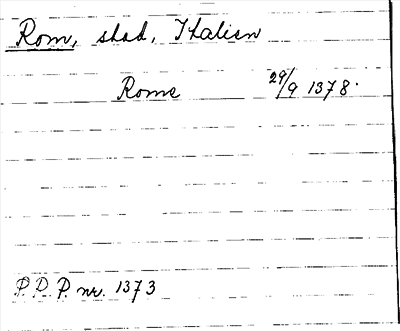 Rom, stad, Italien
Rome 29/9 1378.
P.P.P. nr. 1373